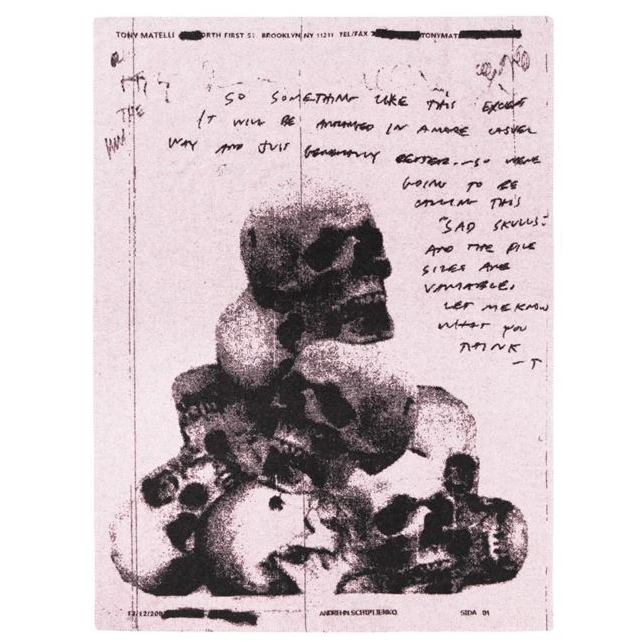 TONY MATELLI ORTH FIRST ST. BROOKLYN, NY 11211 TEL/FAX TONYMAT
THE
SO SOMETHING LIKE THIS EXCEPT
IT WILL BE ARRANGED IN A MORE CASUAL
WAY AND JUST GENERALLY BETTER. SO WERE
GOING TO BE
CALLING THIS
"SAD SKULLS."
AND THE PILE
SIZES ARE
VARIABLE.
LET ME KNOW
WHAT YOU
THINK
- T
12/12/200 ANDREHN SCHIPTJENKO SIDA 01